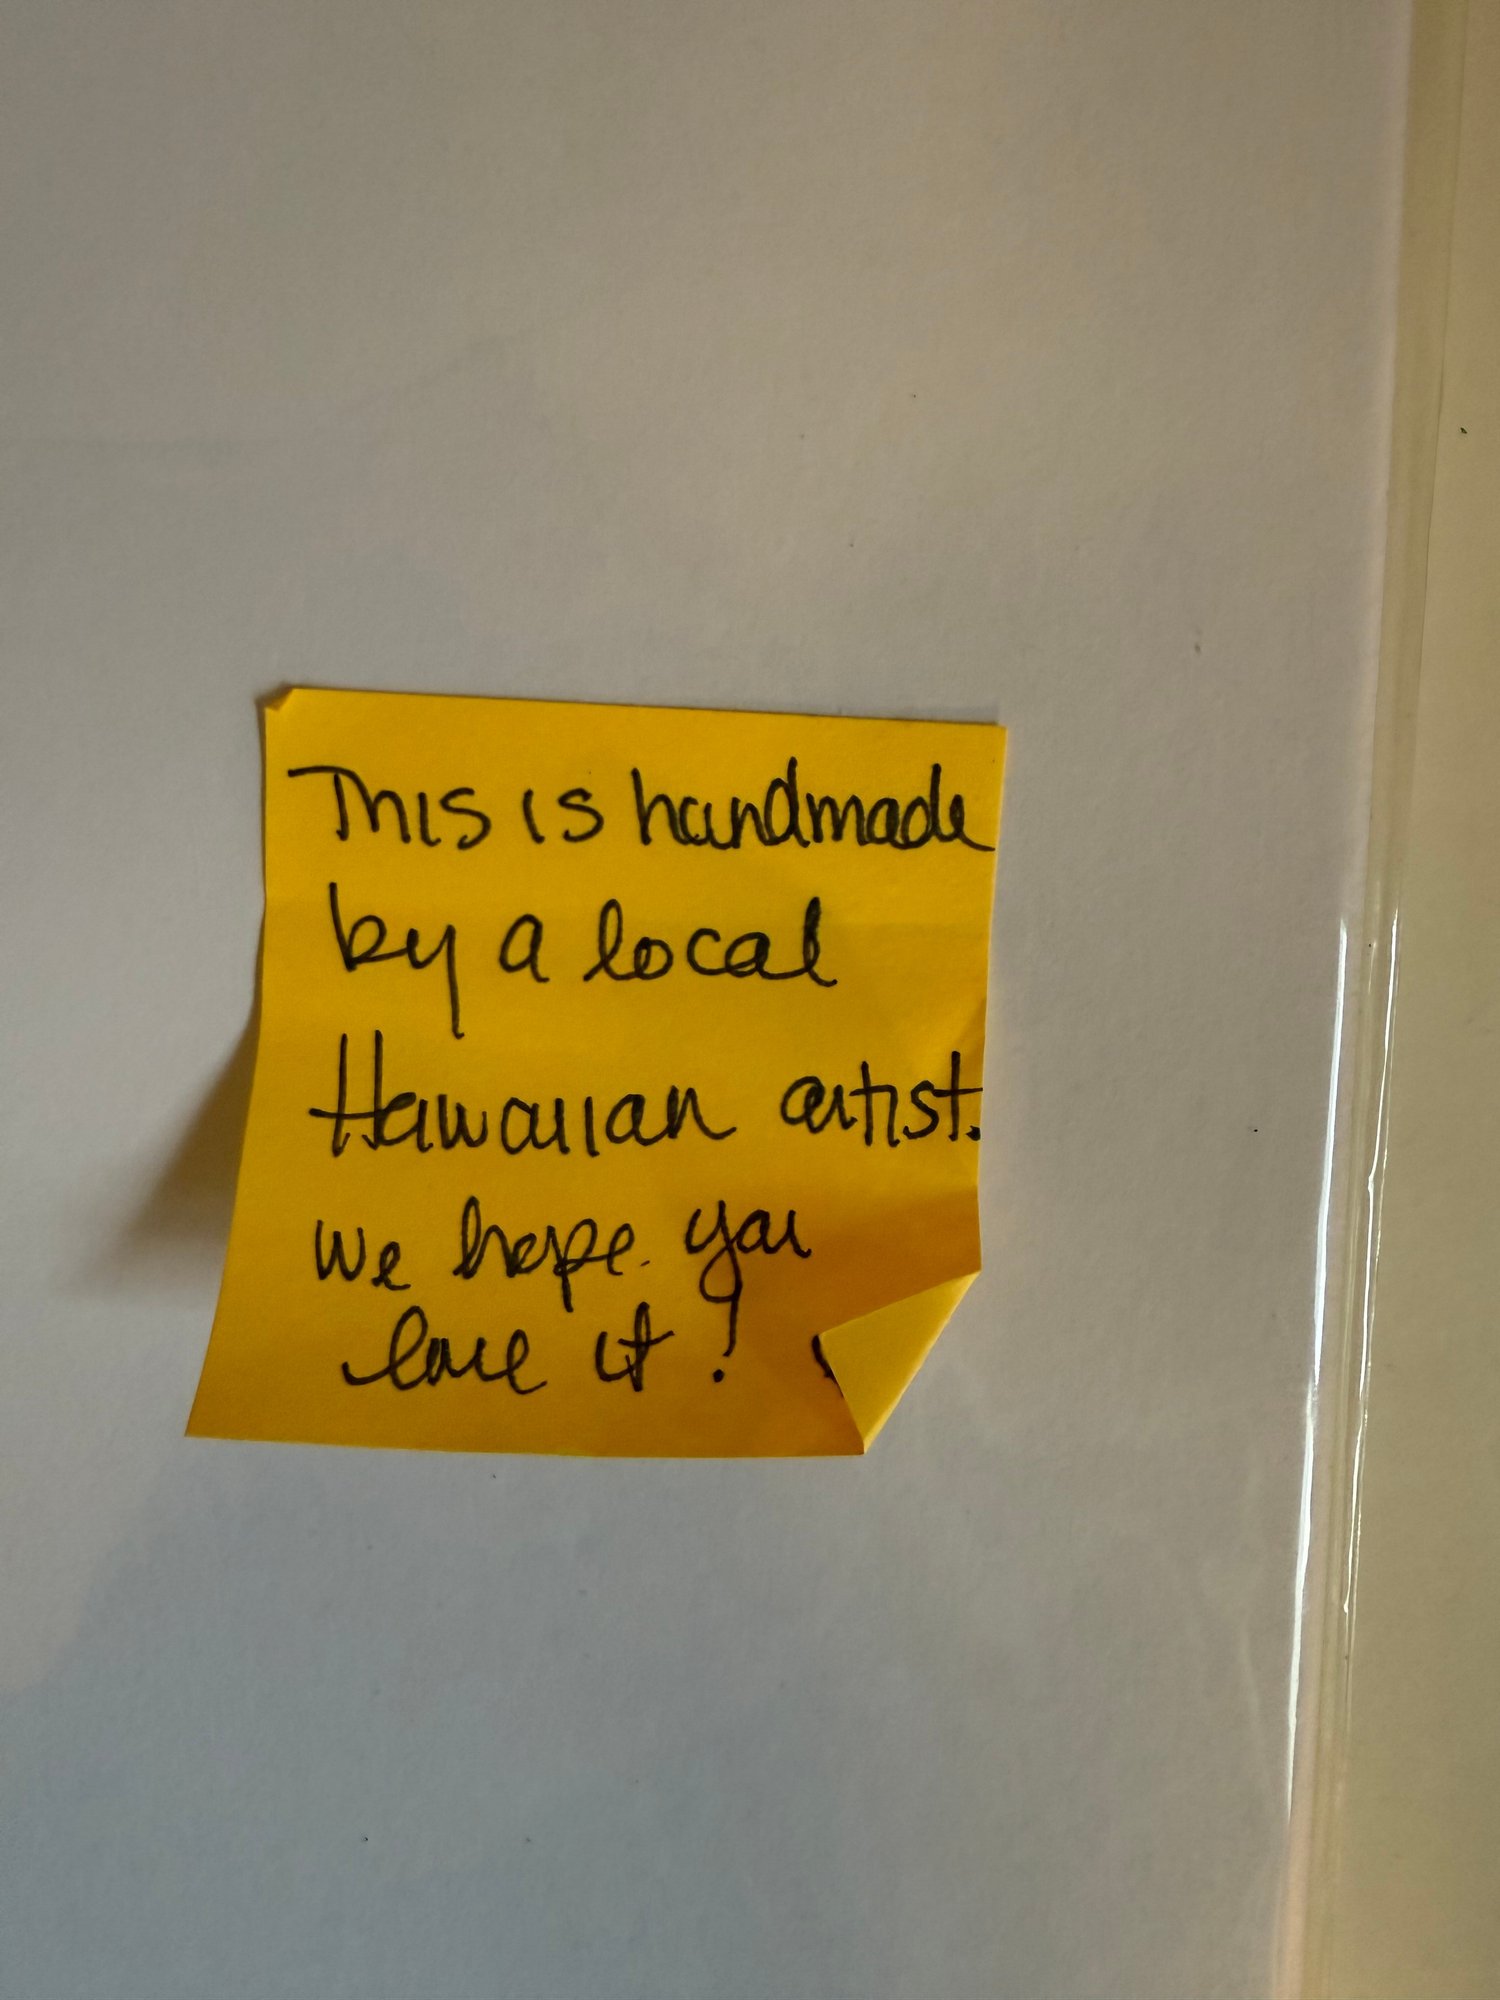 This is handmade
by a local
Hawaiian artist.
We hope you
love it!